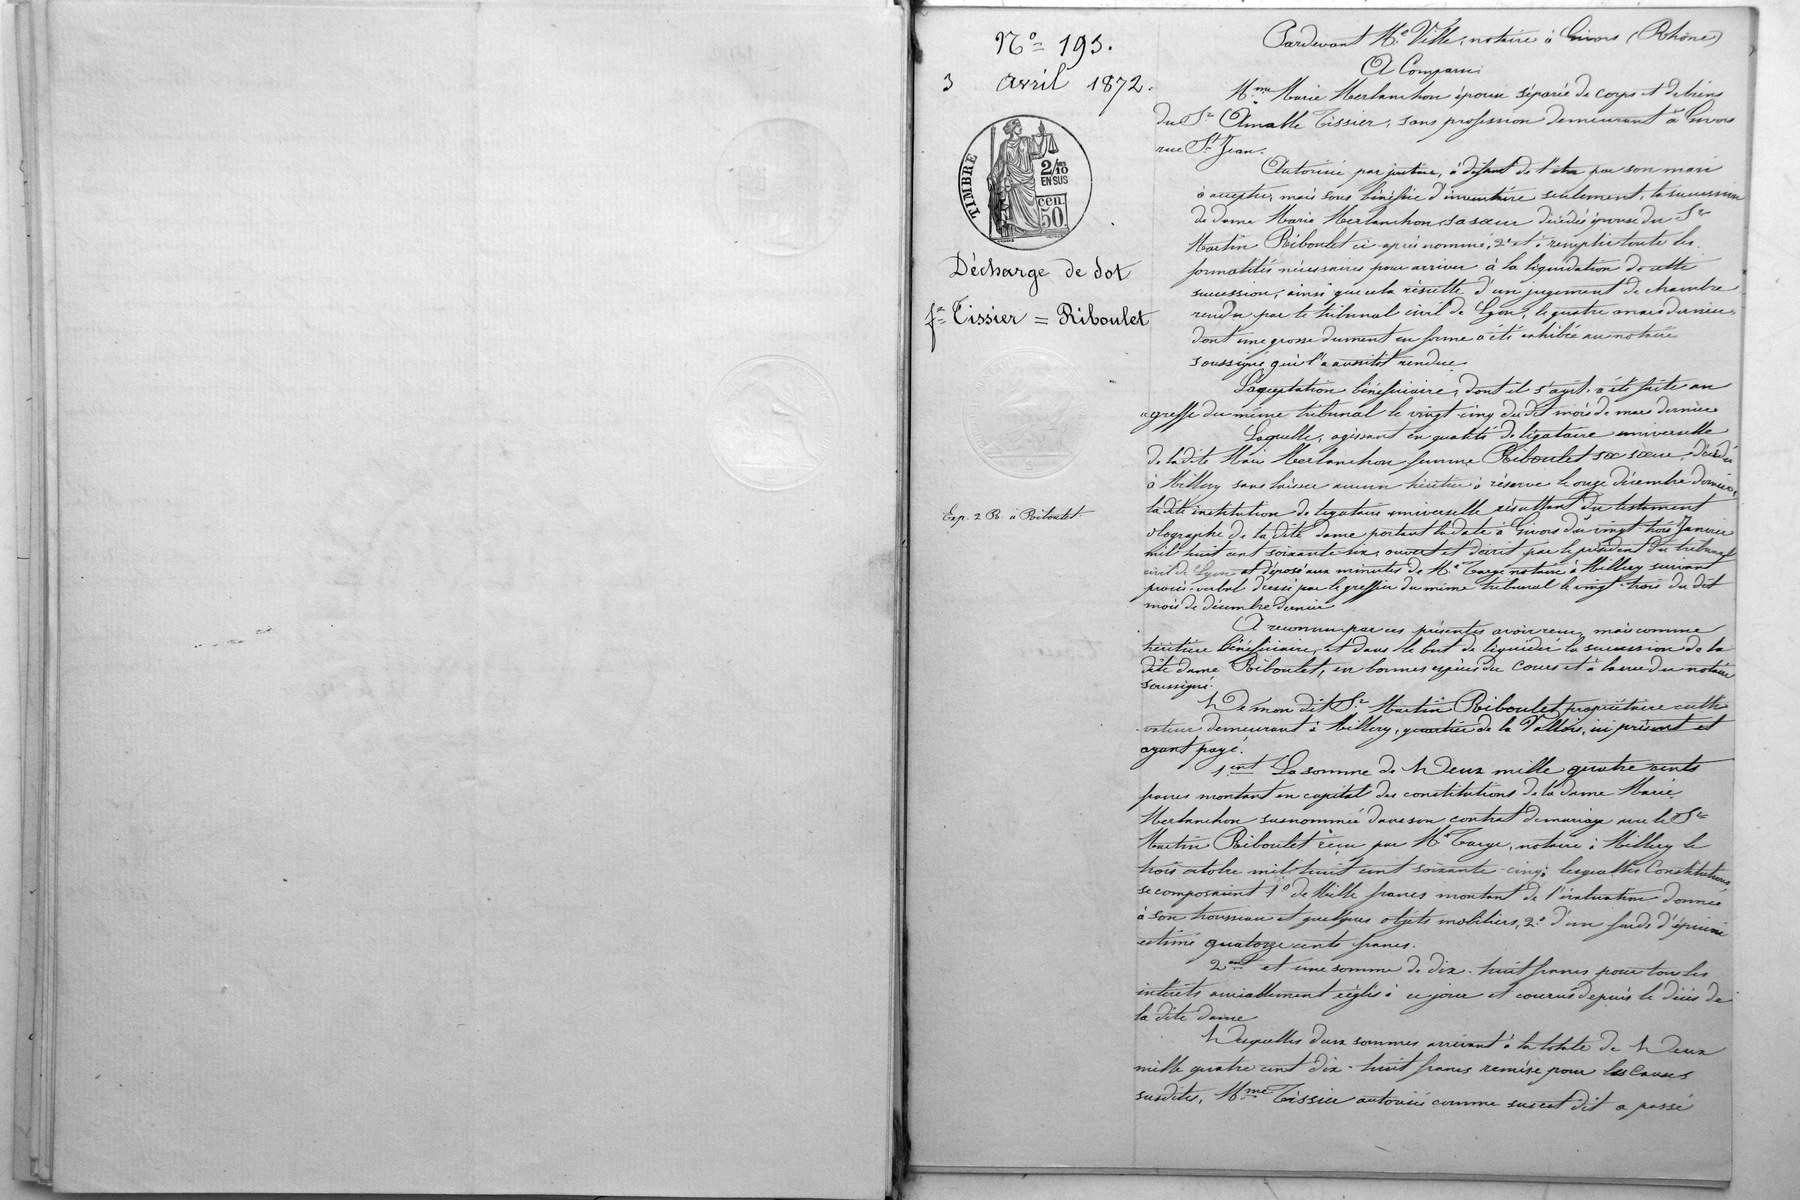 Nº 193.
3 avril 1872.
TIMBRE
2/10 ms
EN SUS
cen.
50.
Décharge de dot
fe Tissier = Riboulet
Exp. 2 R. à Riboulet.
Pardevant Me Ville, notaire à Givors (Rhône)
A Comparu
Mme Marie Merlanchon épouse séparée de corps et de biens
du Sr Amable Tissier, sans profession demeurant à Givors
rue St Jean.
Autorisée par justice, à défaut de l'être par son mari
à accepter, mais sous bénéfice d'inventaire seulement, la succession
de dame Marie Merlanchon, sa sœur décédée épouse du Sr
Martin Riboulet ci-après nommé, 2º et à remplir toute les
formalités nécessaires pour arriver à la liquidation de cette
succession, ainsi que cela résulte d'un jugement de chambre
rendu par le tribunal civil de Lyon, le quatre mars dernier
dont une grosse dument en forme a été exhibée au notaire
soussigné qui l'a aussitôt rendue
L'acceptation bénéficiaire, dont il s'agit, a été faite au
greffe du même tribunal le vingt-cinq du dit mois de mars dernier
Laquelle, agissant en qualité de légataire universelle
de la dite Marie Merlanchon femme Riboulet sa sœur, décédée
à Millery sans laisser aucun héritier à réserve le onze décembre dernier,
la dite institution de légataire universelle résultant du testament
olographe de la dite dame portant la date à Givors du vingt-trois Janvier
mil huit cent soixante six, ouvert et décrit par le président du tribunal
civil de Lyon et déposé aux minutes de Me Targe notaire à Millery suivant
procès-verbal dressé par le greffier du même tribunal le vingt-trois du dit
mois de décembre dernier
A reconnu par ces présentes avoir reçu, mais comme
héritière bénéficiaire, et dans le but de liquider la succession de la
dite dame Riboulet, en bonnes espèces du cours et à la vue du notaire
soussigné.
De mon dit Sr Martin Riboulet propriétaire culti-
-vateur demeurant à Millery, quartier de la Vallois, ici présent et
ayant payé.
1ent La somme de Deux mille quatre cents
francs montant en capital des constitutions de la dame Marie
Merlanchon susnommée dans son contrat de mariage avec le Sr
Martin Riboulet reçu par Me Targe, notaire à Millery le
trois octobre mil huit cent soixante-cinq, lesquelles Constitutions
se composaient 1º de Mille francs montant de l'évaluation donnée
à son trousseau et quelques objets mobiliers, 2º d'un fonds d'épicerie
estimé quatorze cents francs.
2ent et une somme de dix-huit francs pour tous les
intérêts amiablement réglés à ce jour et courus depuis le décès de
la dite dame
Desquelles deux sommes arrivant à la totale de Deux
mille quatre cent dix-huit francs remise pour les Causes
susdites, Mme Tissier autorisée comme sus est dit a passé